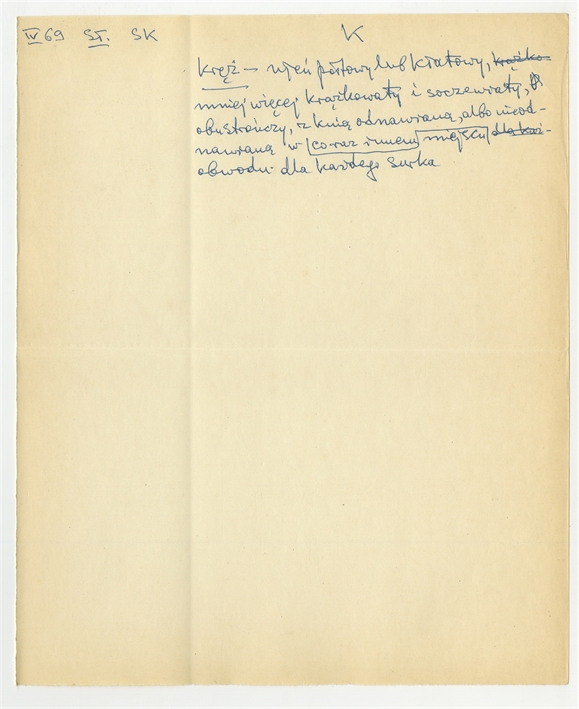 IV 69 ST. SK K
kręż — rdzeń półtowy lub kłatowy, krążko-
mniej więcej krążkowaty i soczewiaty,
obustrończy, z knią odnawianą, albo nieod-
nawianą w coraz innem miejscu dla każ-
obwodu dla każdego surka